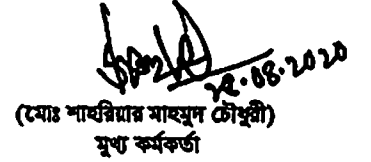 ২৫.08.2020
(মোঃ শাহরিয়ার মাহমুদ চৌধুরী)
মুখ্য কর্মকর্তা